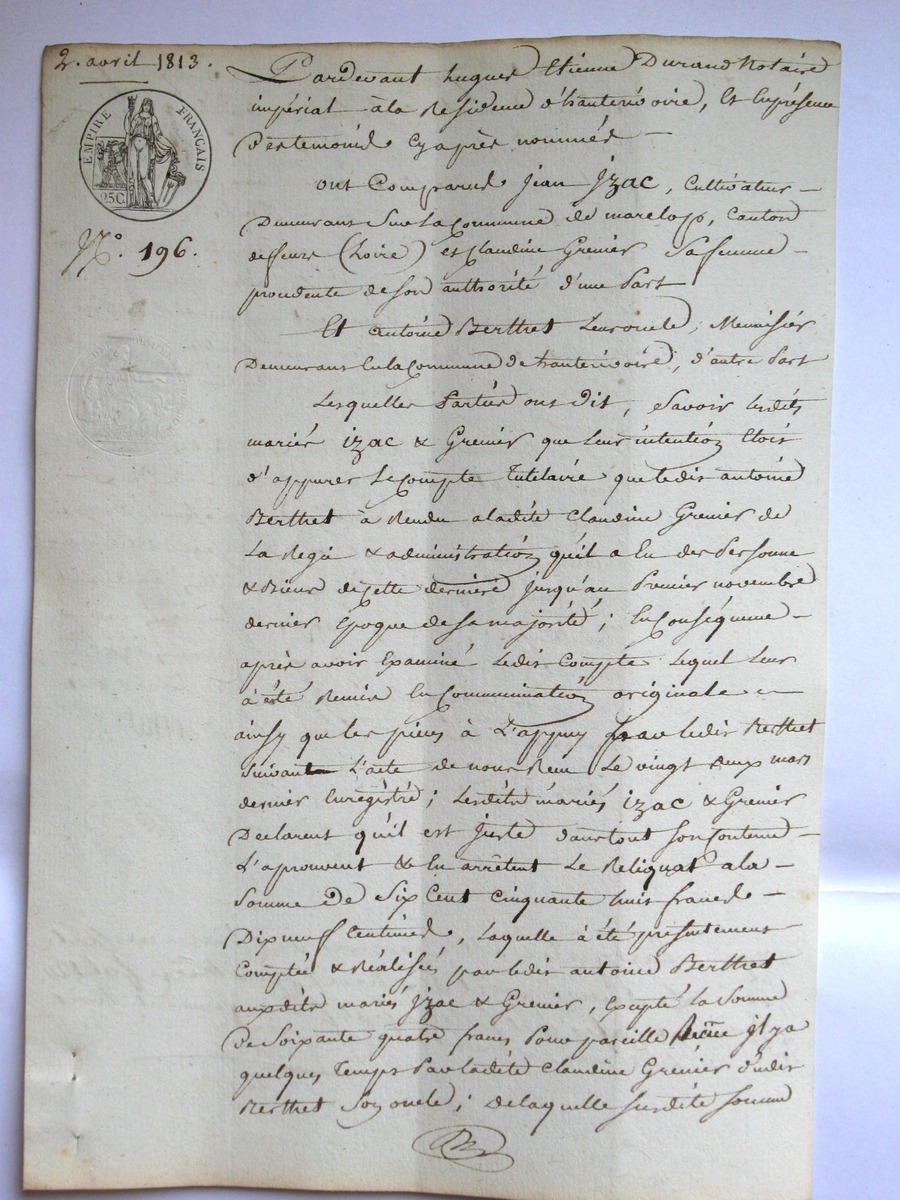 2. avril 1813.
EMPIRE FRANÇAIS
25 C.
N.° 196.
Pardevant hugues Etienne Durand Notaire
impérial à la Residence d'hauterivoire, Et En présence
Des temoins Cy après nommés —
ont Comparus Jean Izac, Cultivateur —
Demeurant Sur La Commune de Marclop, Canton
de feurs (Loire) et Claudine Grenier Sa femme —
procedente de Son authorité d'une Part
Et antoine Berthet Leur oncle, Menuisier
Demeurant En la Commune de hauterivoire, d'autre Part
Lesquelles Parties ont dit, Savoir Lesdits
mariés izac & Grenier que Leur intention Etoit
d'appurer Le Compte Tutelaire que ledit antoine
Berthet à Rendu a ladite Claudine Grenier de
La Regie & administration qu'il a Eu des Personne
& Biens de Cette derniere jusqu'au Premier novembre
dernier Epoque de Sa majorité; En Conséquence —
après avoir Examiné Ledit Compte Lequel Leur
à été Remis En Communication originale —
ainsy que les pieces à L'appuy par ledit Berthet
suivant L'acte de nous Reçu Le vingt deux mars
dernier Enregistré; Lesdits mariés izac & Grenier
Declarent qu'il est Juste dans tout Son Contenu —
L'aprouvent & En arrêtent Le Reliquat a la —
Somme De Six Cent Cinquante huit francs —
Dix neuf Centimes, Laquelle à été présentement
Comptée & Réalisée par ledit antoine Berthet
auxdits mariés Izac & Grenier, Excepté la Somme
De Soixante quatre francs Pour pareille il y a
quelques Temps Par Ladite Claudine Grenier dudit
Berthet Son oncle; de laquelle Susdite Somme